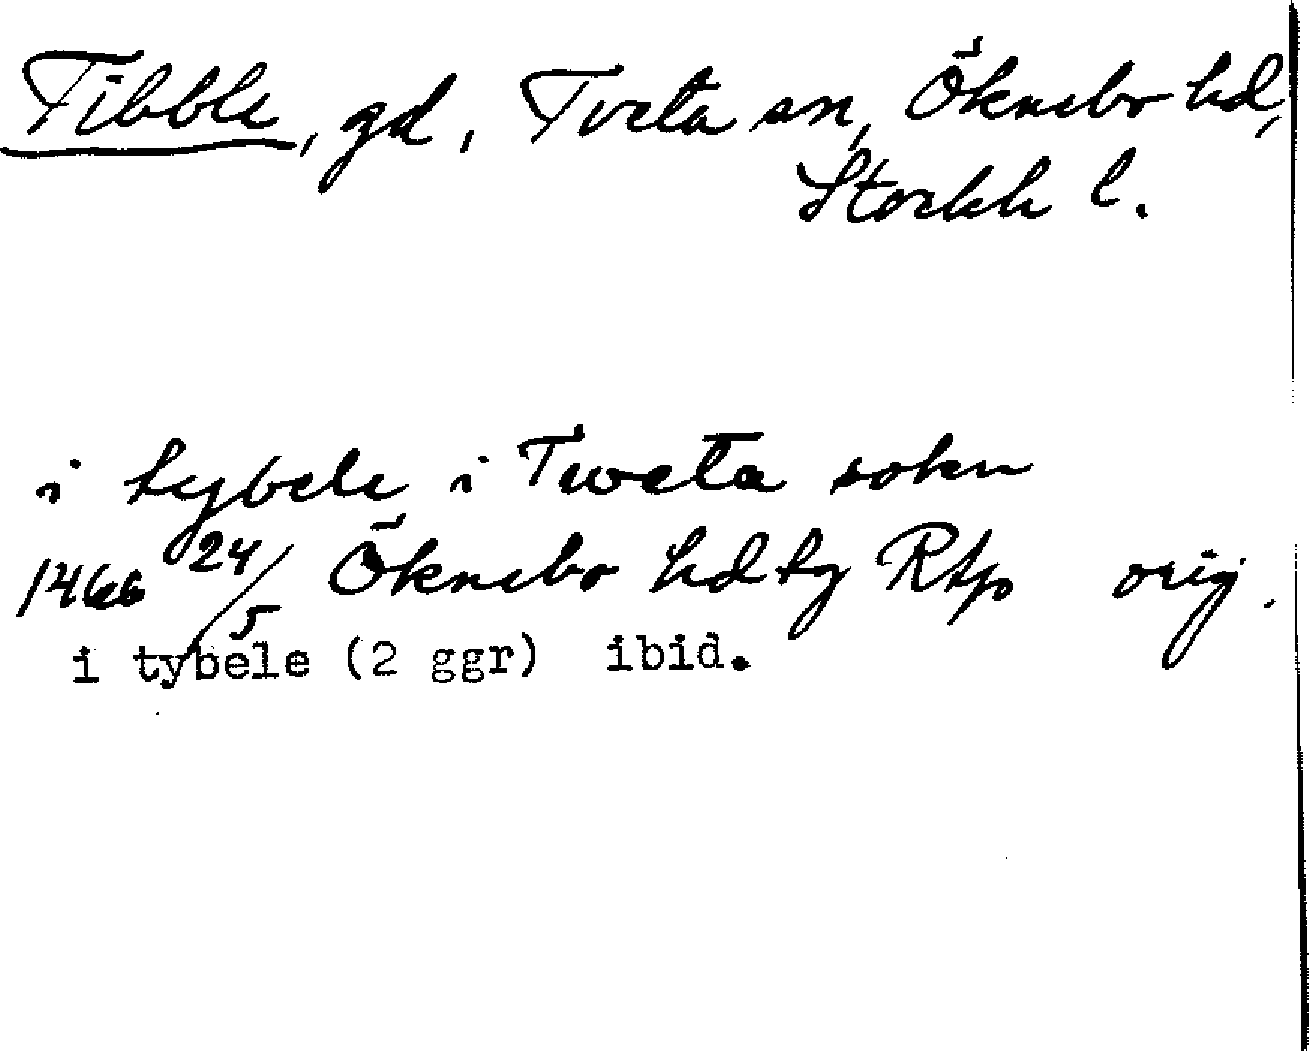 Tibble, gd, Tveta sn, Öknebo hd,
Stockh l.
i tybele i Tweta sokn
1466 24/5 Öknebo hd tg RApp orig.
i tybele (2 ggr) ibid.